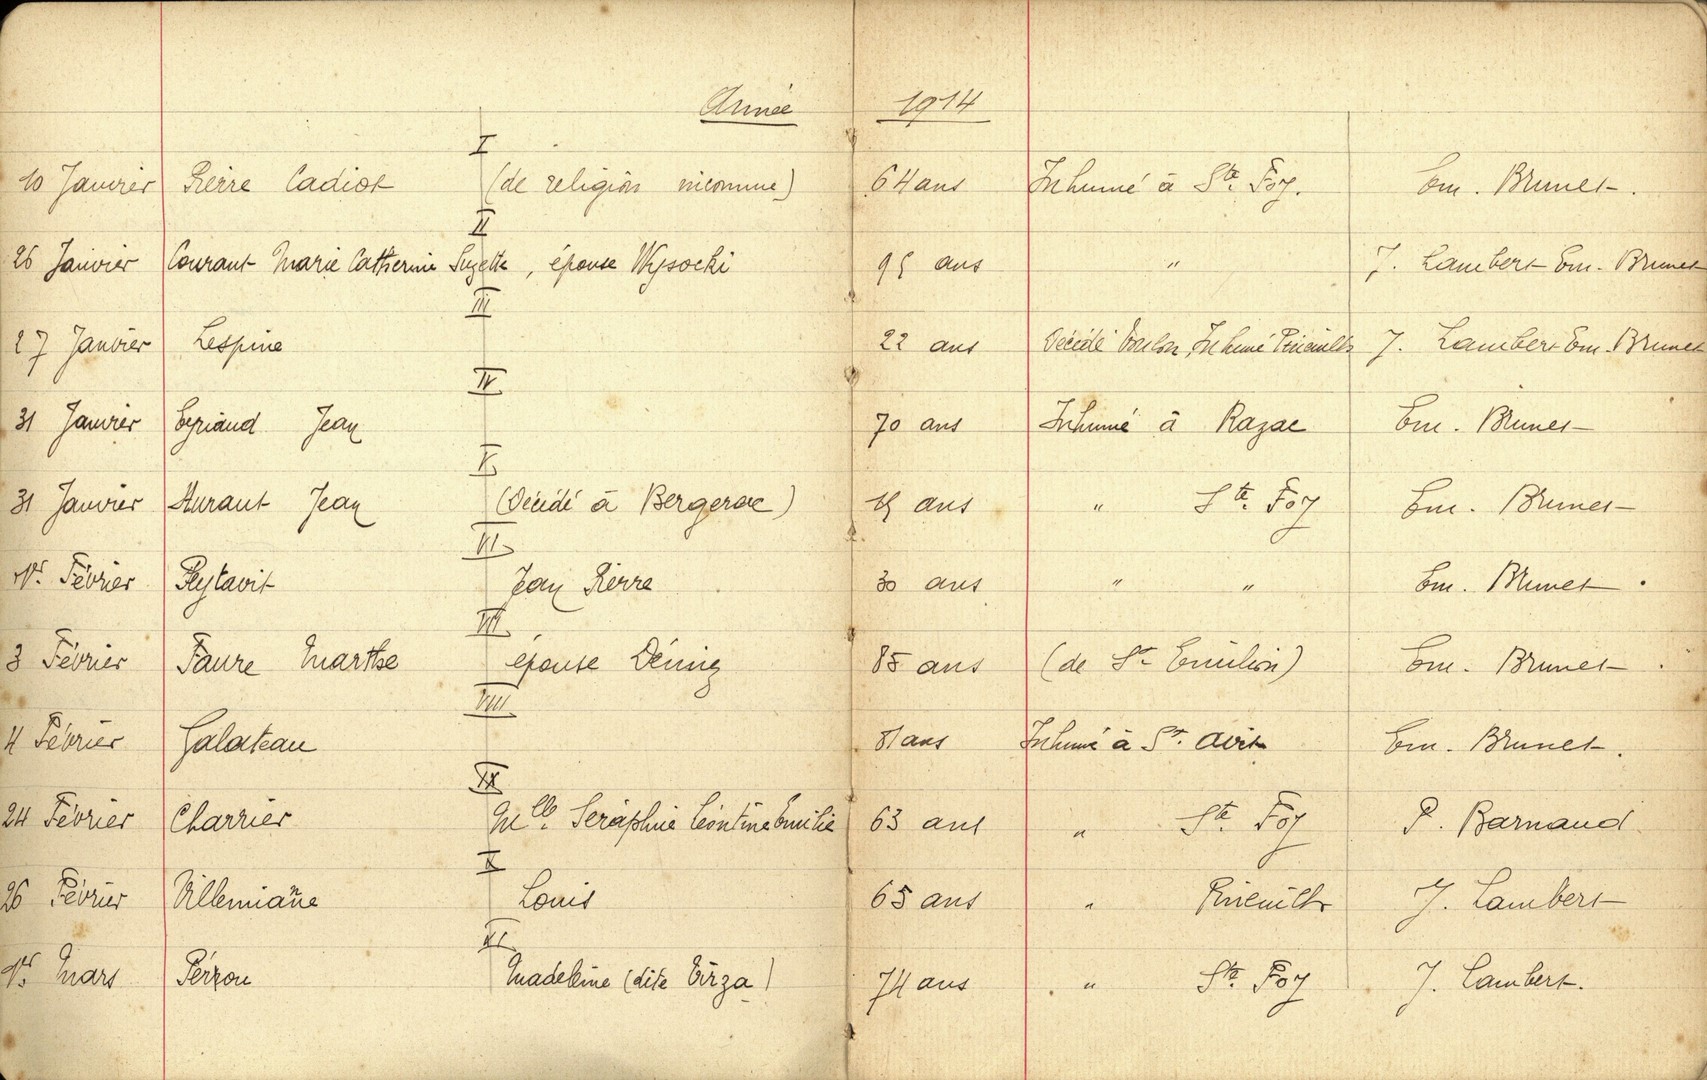 Année 1914
I
10 Janvier Pierre Cadiot (de religion inconnue) 64 ans Inhumé à Ste Foy. Em. Brunet.
II
26 Janvier Courant Marie Catherine Suzette, épouse Wysocki 95 ans " J. Lambert Em. Brunet
III
27 Janvier Lespine 22 ans Décédé Toulon, Inhumé Pineuilh J. Lambert Em. Brunet
IV
31 Janvier Eyriaud Jean 70 ans Inhumé à Razac Em. Brunet
V
31 Janvier Jean (Décédé à Bergerac) ans " Ste Foy Em. Brunet
VI
1er Février Peytavit Jean Pierre 30 ans " " Em. Brunet.
VII
3 Février Faure Marthe épouse 85 ans (de St Emilion) Em. Brunet.
VIII
4 Février Galateau 81 ans Inhumé à St. Avit Em. Brunet.
IX
24 Février Charrier Mlle. Séraphie Léontine Emilie 63 ans " Ste Foy P. Barnaud
X
26 Février Villemiane Louis 65 ans " Pineuilh J. Lambert
XI
1er Mars Perrou Madeleine (dite Tirza) 74 ans " Ste Foy J. Lambert.